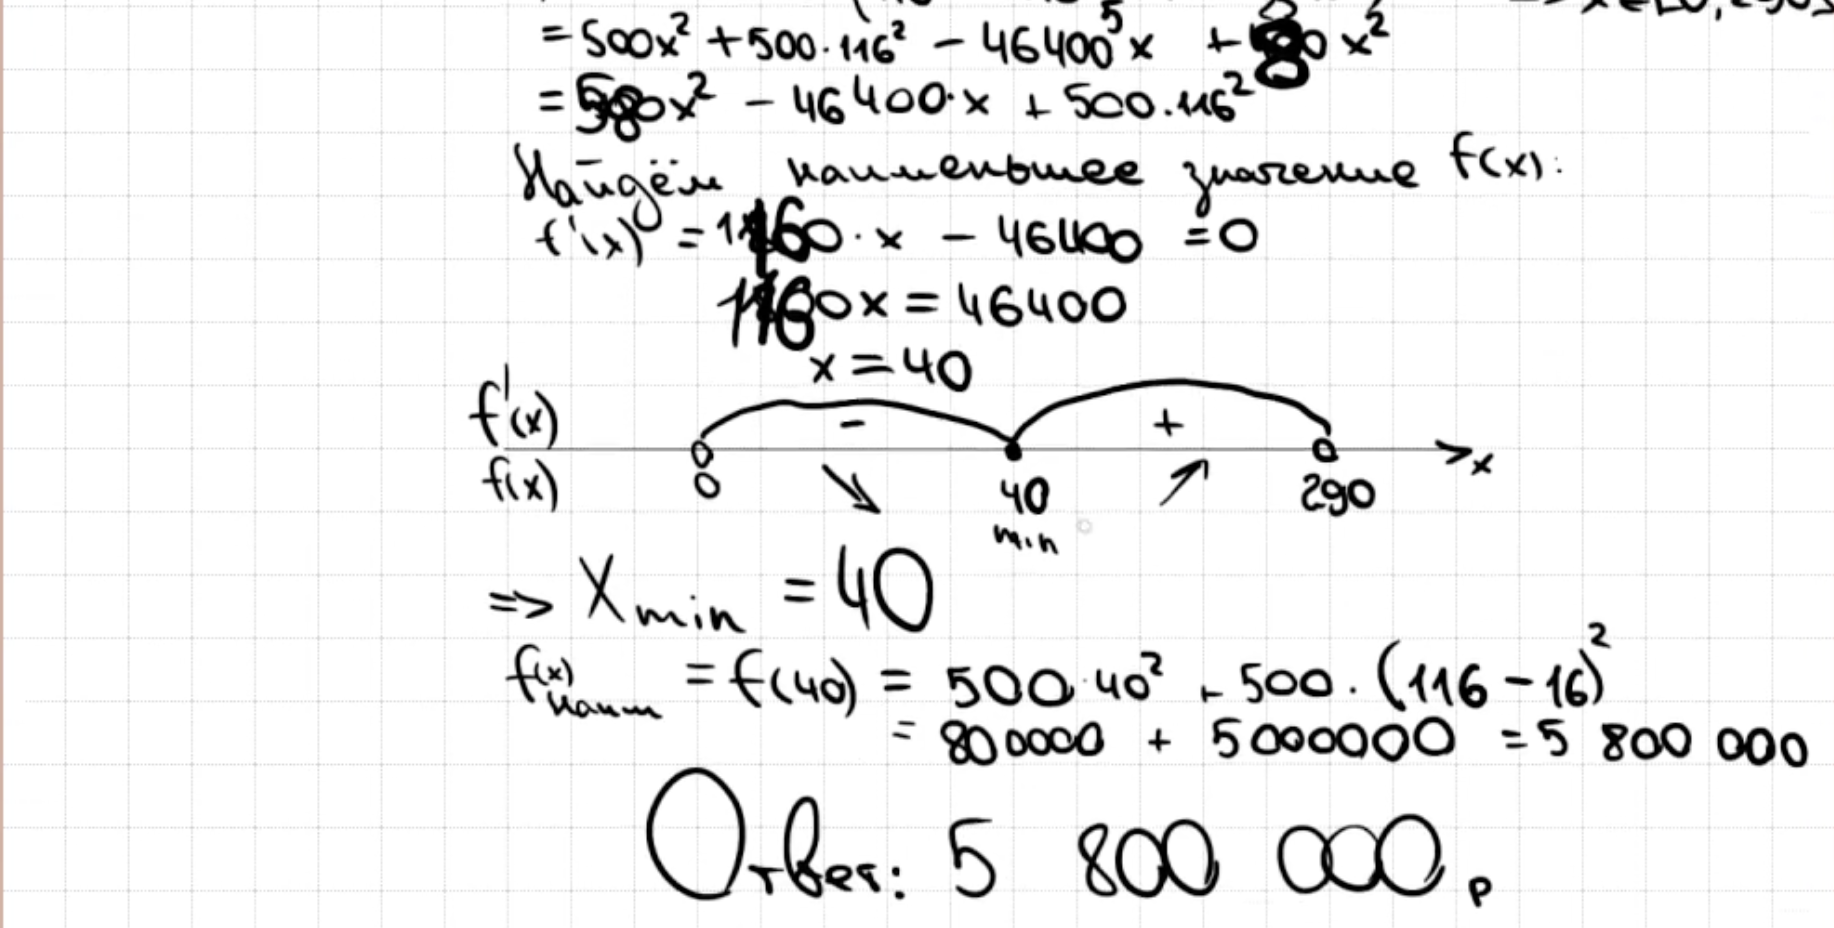 = 500x² + 500·116² - 46400x + 80x²
= 580x² - 46400·x + 500·116²
Найдём наименьшее значение f(x):
f'(x) = 1160·x - 46400 = 0
1160x = 46400
x = 40
f'(x) - + x
f(x) 0 40 290
min
=> Xmin = 40
f(x)наим = f(40) = 500·40² + 500·(116-16)²
= 800000 + 5000000 = 5 800 000
Ответ: 5 800 000 р